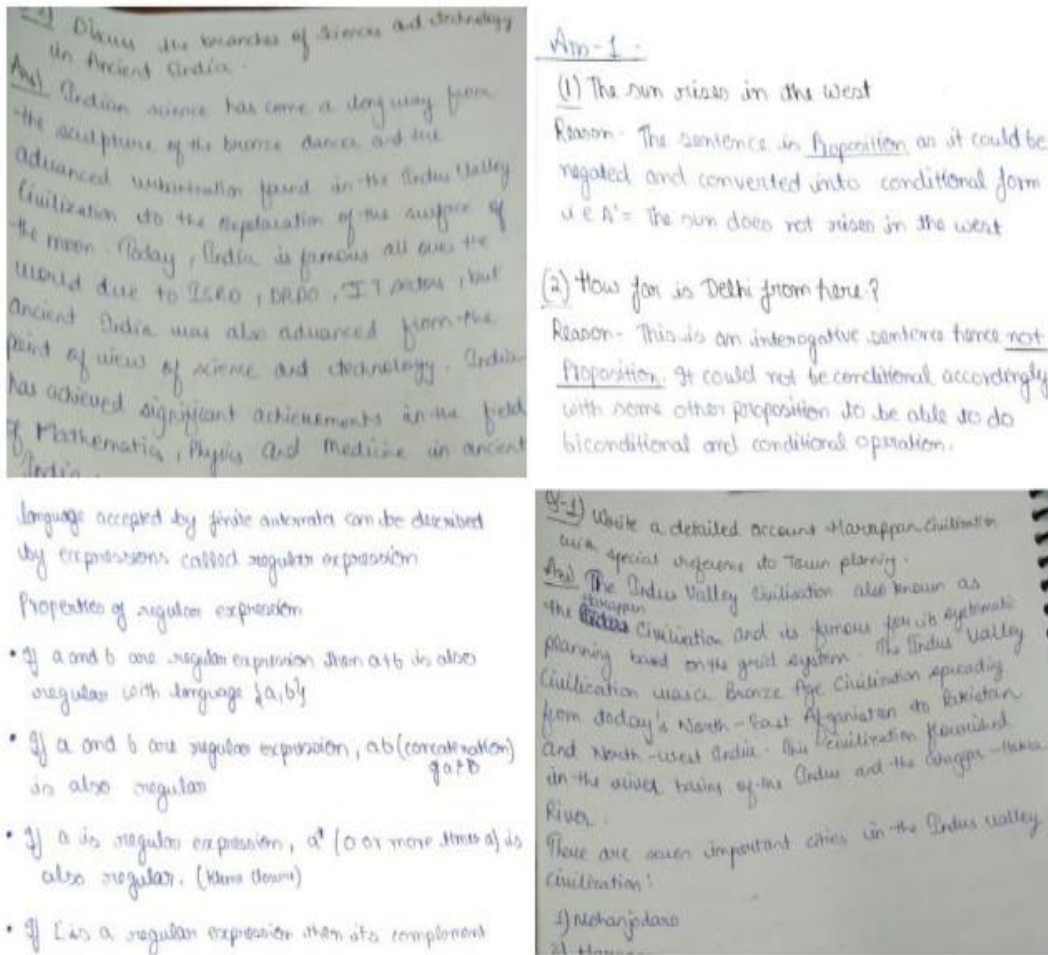 Discuss the branches of Sciences and technology
in Ancient India.
Ans) Indian science has come a long way from
the sculpture of the bronze dancer and the
advanced urbanization found in the Indus Valley
Civilization to the exploration of the surface of
the moon. Today, India is famous all over the
world due to ISRO, DRDO, IT sectors, but
ancient India was also advanced from the
point of view of science and technology. India
has achieved significant achievements in the field
of Mathematics, Physics and Medicine in ancient
India.
Ans-1.
(1) The sun rises in the west
Reason- The sentence is Proposition as it could be
negated and converted into conditional form
A' = The sun does not rises in the west
(2) How far is Delhi from here?
Reason- This is an interogative sentence hence not
Proposition. It could not be conditional accordingly
with some other proposition to be able to do
biconditional and conditional operation.
language accepted by finite automata can be described
by expressions called regular expression
Properties of regular expression
• If a and b are regular expression then a+b is also
regular with language {a,b}
• If a and b are regular expression, ab (concatenation)
is also regular
• If a is regular expression, a* (0 or more times a) is
also regular. (Kleene
• If L is a regular expression then its complement
Q-1) Write a detailed account Harappan Civilization
with special reference to Town planning.
Ans) The Indus Valley Civilisation also known as
Harappan
the Civilization and is famous for its systematic
planning based on the grid system. The Indus Valley
Civilization was a Bronze Age Civilization spreading
from today's North-East Afganistan to Pakistan
and North-west India. The civilization flourished
in the river basins of the Indus and the Ghaggar-Hakra
River.
There are seven important cities in the Indus valley
civilization:
1) Mohanjodaro